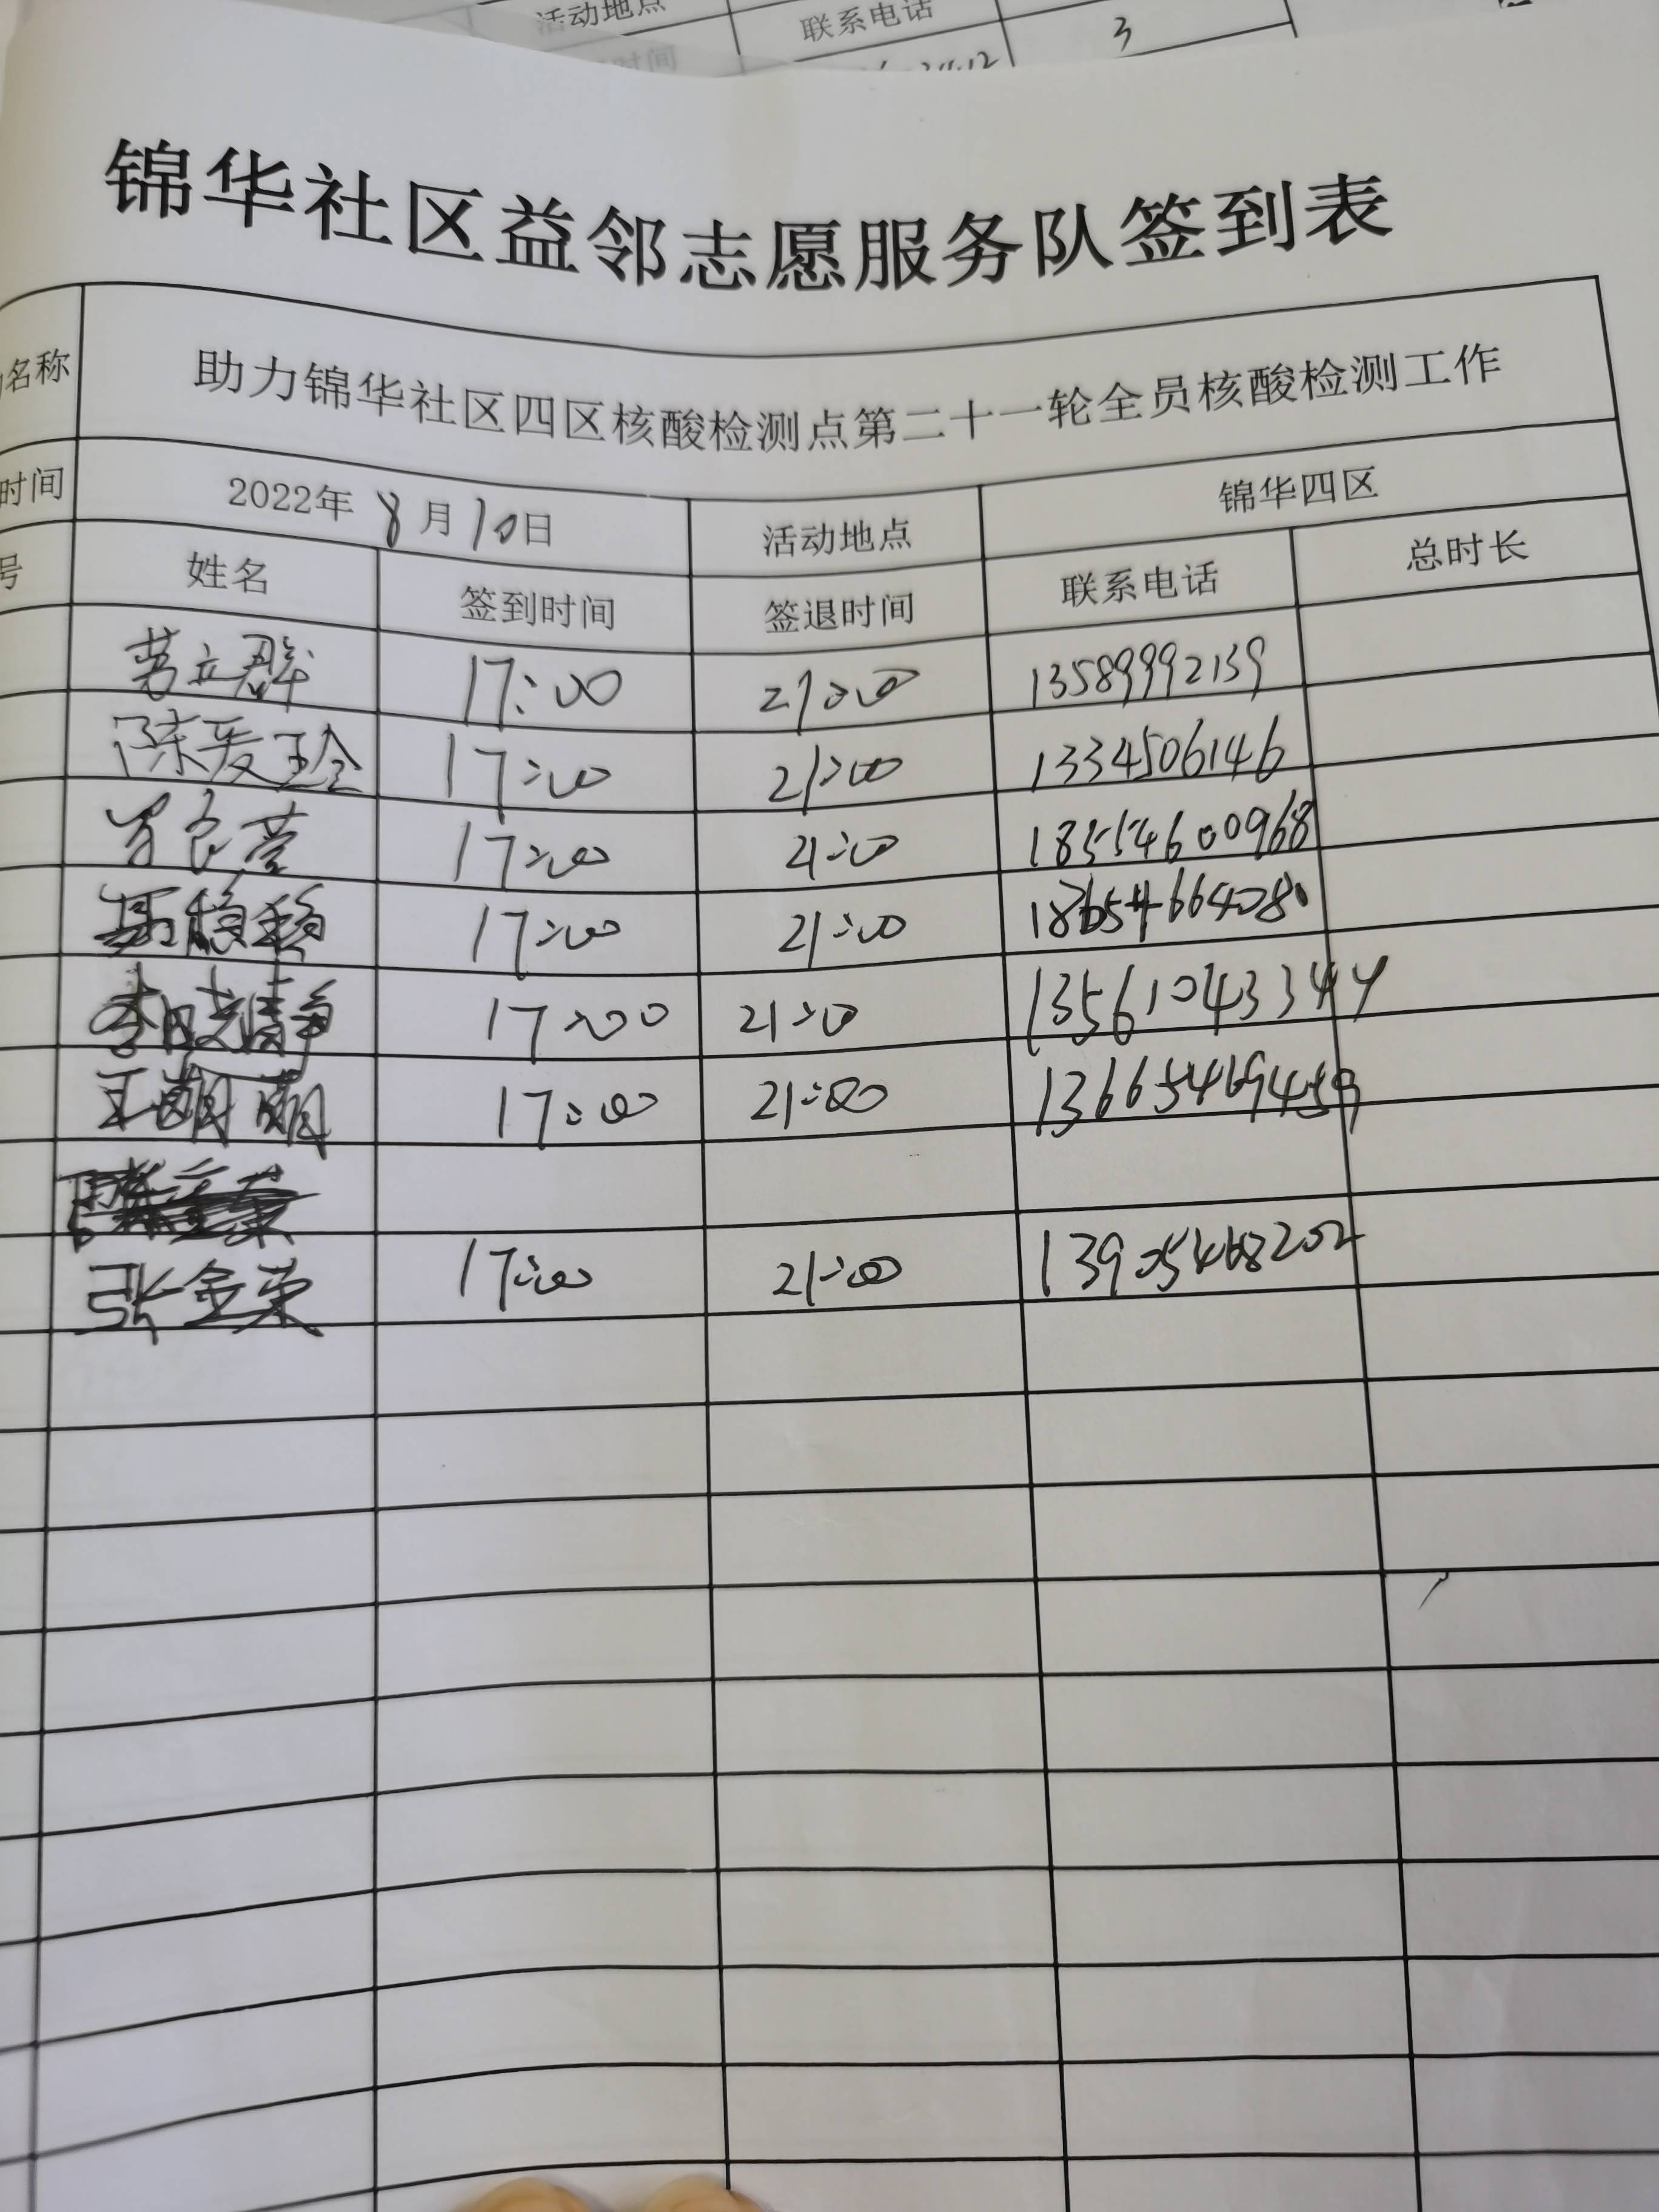 活动地点 联系电话 3
时间
锦华社区益邻志愿服务队签到表
名称 助力锦华社区四区核酸检测点第二十一轮全员核酸检测工作
时间 2022年8月10日 活动地点 锦华四区
号 姓名 签到时间 签退时间 联系电话 总时长
17:00 21:00 13589992139
陈爱玲 17:00 21:00 1334506146
17:00 21:00 18554600968
17:00 21:00 18654664080
李晓静 17:00 21:00 13561043344
王萌萌 17:00 21:00 13665469459
张金荣 17:00 21:00 13905468202